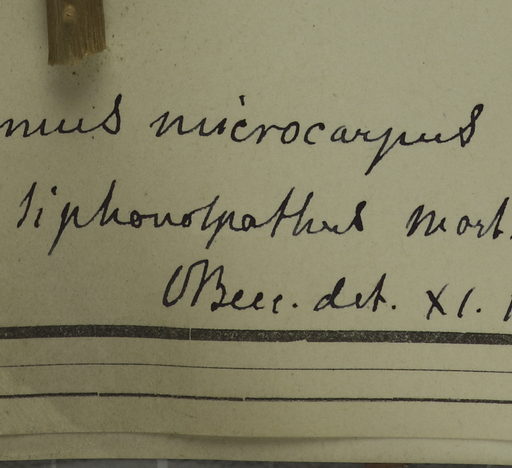 nus microcarpus
siphonospathus Mart.
OBecc. det. XI. 1